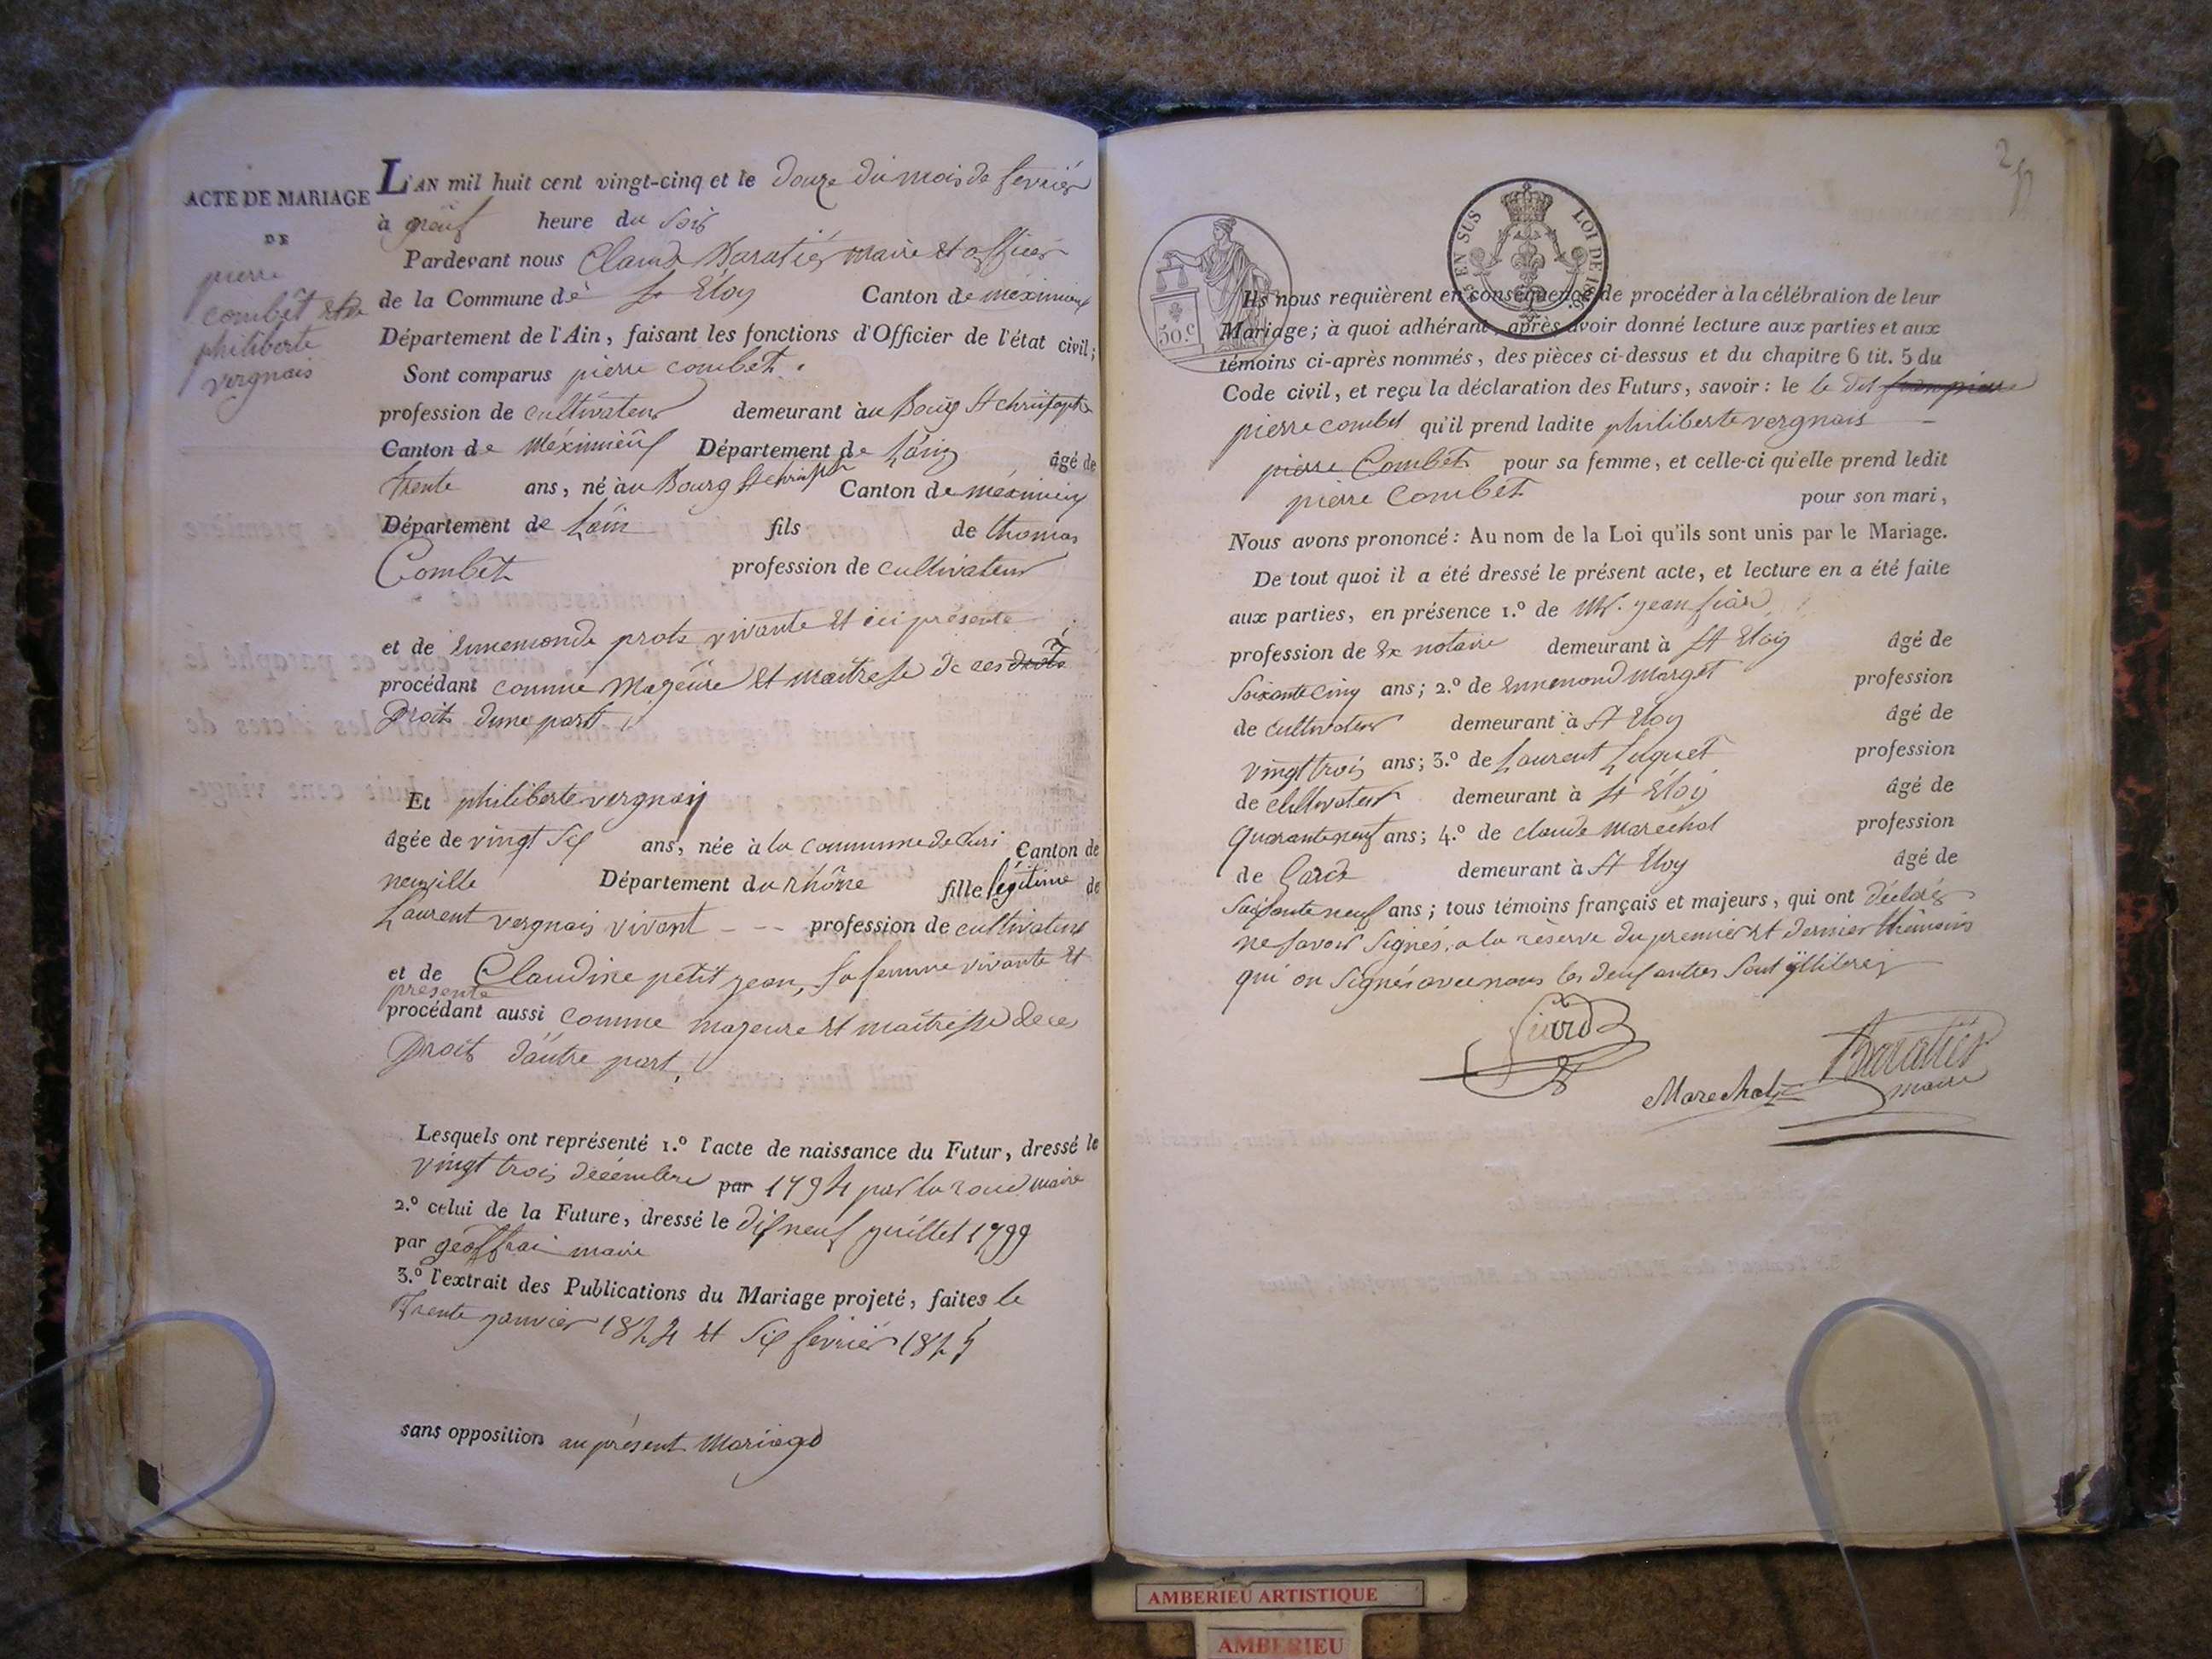 ACTE DE MARIAGE
DE
pierre
combet et de
philiberte
vergnais
L'AN mil huit cent vingt-cinq et le douze du mois de fevrier
à neuf heure du soir
Pardevant nous Claude Baratier maire et officier
de la Commune de St Eloy Canton de meximieux
Département de l'Ain, faisant les fonctions d'Officier de l'état civil;
Sont comparus pierre combet.
profession de cultivateur demeurant àu Bourg St christophe
Canton de Méximieux Département de Lain âgé de
trente ans, né àu Bourg St christophe Canton de meximieux
Département de Lain fils de thomas
Combet profession de cultivateur
et de Ennemonde prots vivante et ici présente
procédant comme Majeure et maitresse de ces droits
Droits dune part;
Et philiberte vergnais
âgée de vingt six ans, née à la commune de Curi Canton de
neuville Département du rhône fille légitime de
Laurent vergnais vivant --- profession de cultivateur
et de Claudine petit jean, sa femme vivante et
présente
procédant aussi comme majeure et maitresse de ces
Droits d'autre part,
Lesquels ont représenté 1.º l'acte de naissance du Futur, dressé le
vingt trois décembre par 1794 par maire
2.º celui de la Future, dressé le dix neuf juillet 1799
par geoffrai maire
3.º l'extrait des Publications du Mariage projeté, faites le
Trente janvier 1824 et six fevrier 1825
sans opposition au présent Mariage
2
50.c
EN SUS
LOI DE
Ils nous requièrent en conséquence de procéder à la célébration de leur
Mariage; à quoi adhérant, après avoir donné lecture aux parties et aux
témoins ci-après nommés, des pièces ci-dessus et du chapitre 6 tit. 5 du
Code civil, et reçu la déclaration des Futurs, savoir: le le dit
pierre combet qu'il prend ladite philiberte vergnais
pierre Combet pour sa femme, et celle-ci qu'elle prend ledit
pierre Combet pour son mari,
Nous avons prononcé: Au nom de la Loi qu'ils sont unis par le Mariage.
De tout quoi il a été dressé le présent acte, et lecture en a été faite
aux parties, en présence 1.º de Mr. jean
profession de Ex notaire demeurant à St Eloy âgé de
Soixante cinq ans; 2.º de Ennemond marget profession
de cultivateur demeurant à St Eloy âgé de
vingt trois ans; 3.º de Laurent Luquet profession
de cultivateur demeurant à St Eloy âgé de
quarante neuf ans; 4.º de claude marechal profession
de Garde demeurant à St Eloy âgé de
Soixante neuf ans; tous témoins français et majeurs, qui ont déclaré
ne savoir signés, a la réserve du premier et dernier thémoins
qui on signés avec nous les deux autres sont yllitérés
Marechal
Baratier
maire
AMBERIEU ARTISTIQUE
AMBERIEU